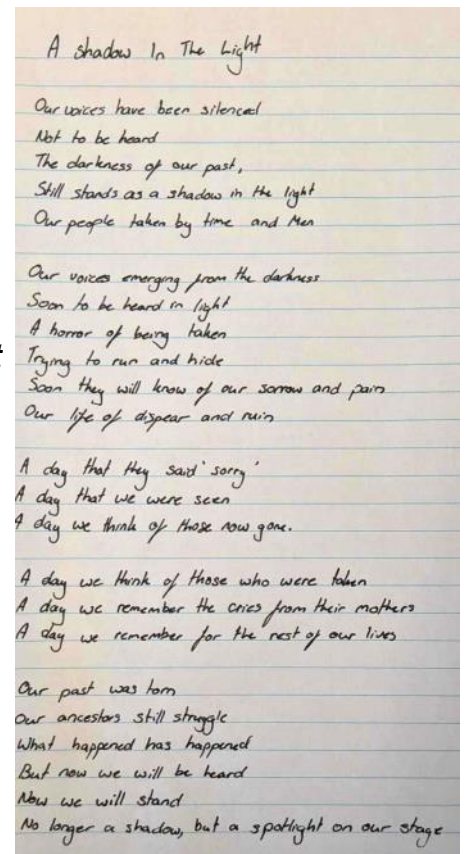 A shadow In The Light
Our voices have been silenced
Not to be heard
The darkness of our past,
Still stands as a shadow in the light
Our people taken by time and Men
Our voices emerging from the darkness
Soon to be heard in light
A horror of being taken
Trying to run and hide
Soon they will know of our sorrow and pain
Our life of dispear and ruin
A day that they said 'sorry'
A day that we were seen
A day we think of those now gone.
A day we think of those who were taken
A day we remember the cries from their mothers
A day we remember for the rest of our lives
Our past was torn
Our ancestors still struggle
What happened has happened
But now we will be heard
Now we will stand
No longer a shadow, but a spotlight on our stage